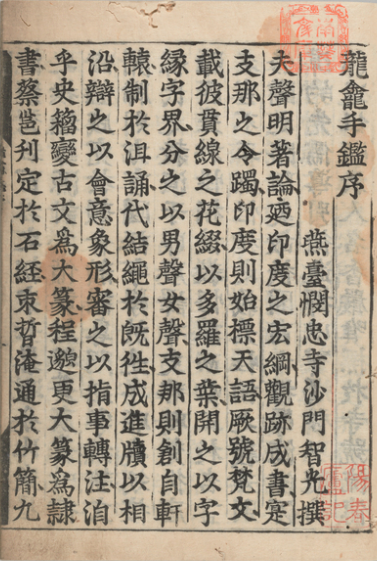 龍龕手鑑序
燕臺憫忠寺沙門智光撰
夫聲明著論迺印度之宏綱觀跡成書寔
支那之令躅印度則始標天語厥號梵文
載彼貫線之花綴以多羅之葉開之以字
緣字界分之以男聲女聲支那則創自軒
轅制於沮誦代結繩於既徃成進牘以相
沿辯之以會意象形審之以指事轉注洎
乎史籀變古文爲大篆程邈更大篆爲隷
書蔡邕刊定於石經束晳淹通於竹簡九
陽春
廬記